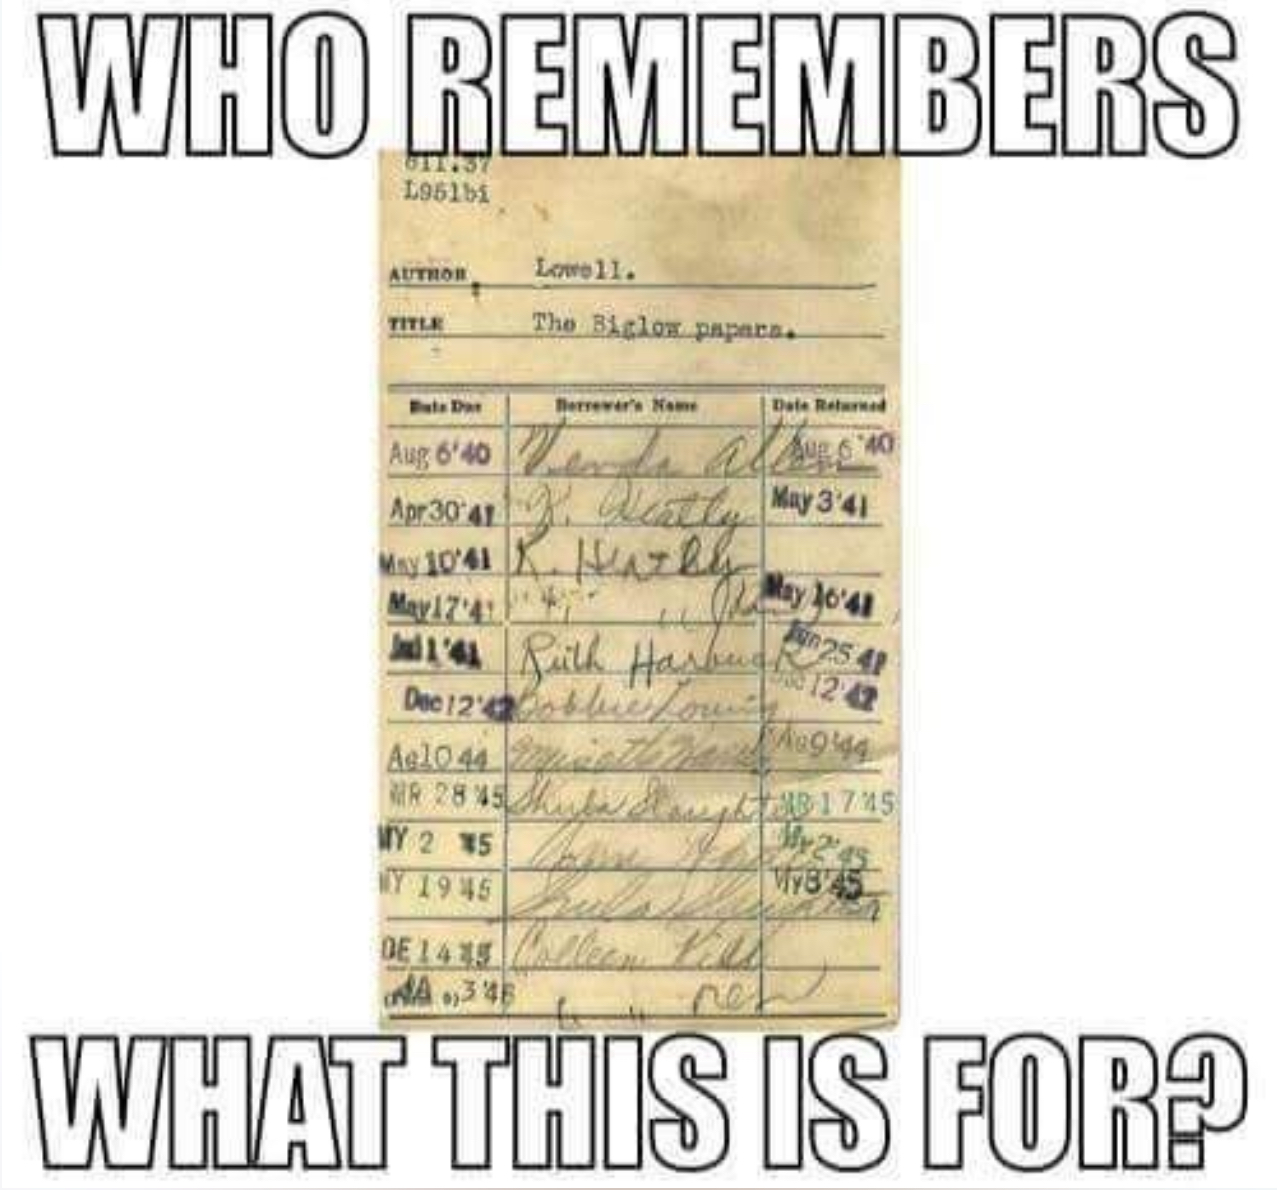 WHO REMEMBERS
811.37
L951bi
AUTHOR Lowell.
TITLE The Biglow papers.
Date Due Borrower's Name Date Returned
Aug 6'40 Allen Aug 6 '40
Apr 30'41 K. Heatly May 3'41
May 10'41 K. Heatly
May 17'41 " " May 16'41
Jul 1'41 Ruth Harbuck Jun 25 41
Dec 12'42 Bobbie Dec 12'42
Ag10 44 Ag 9'44
MR 28 '45 Slaughter MR 17 '45
MY 2 '45 My 2'45
MY 19 '45 My 8'45
DE 14 '45 Colleen Kidd
JA 3'46 " " ren
WHAT THIS IS FOR?